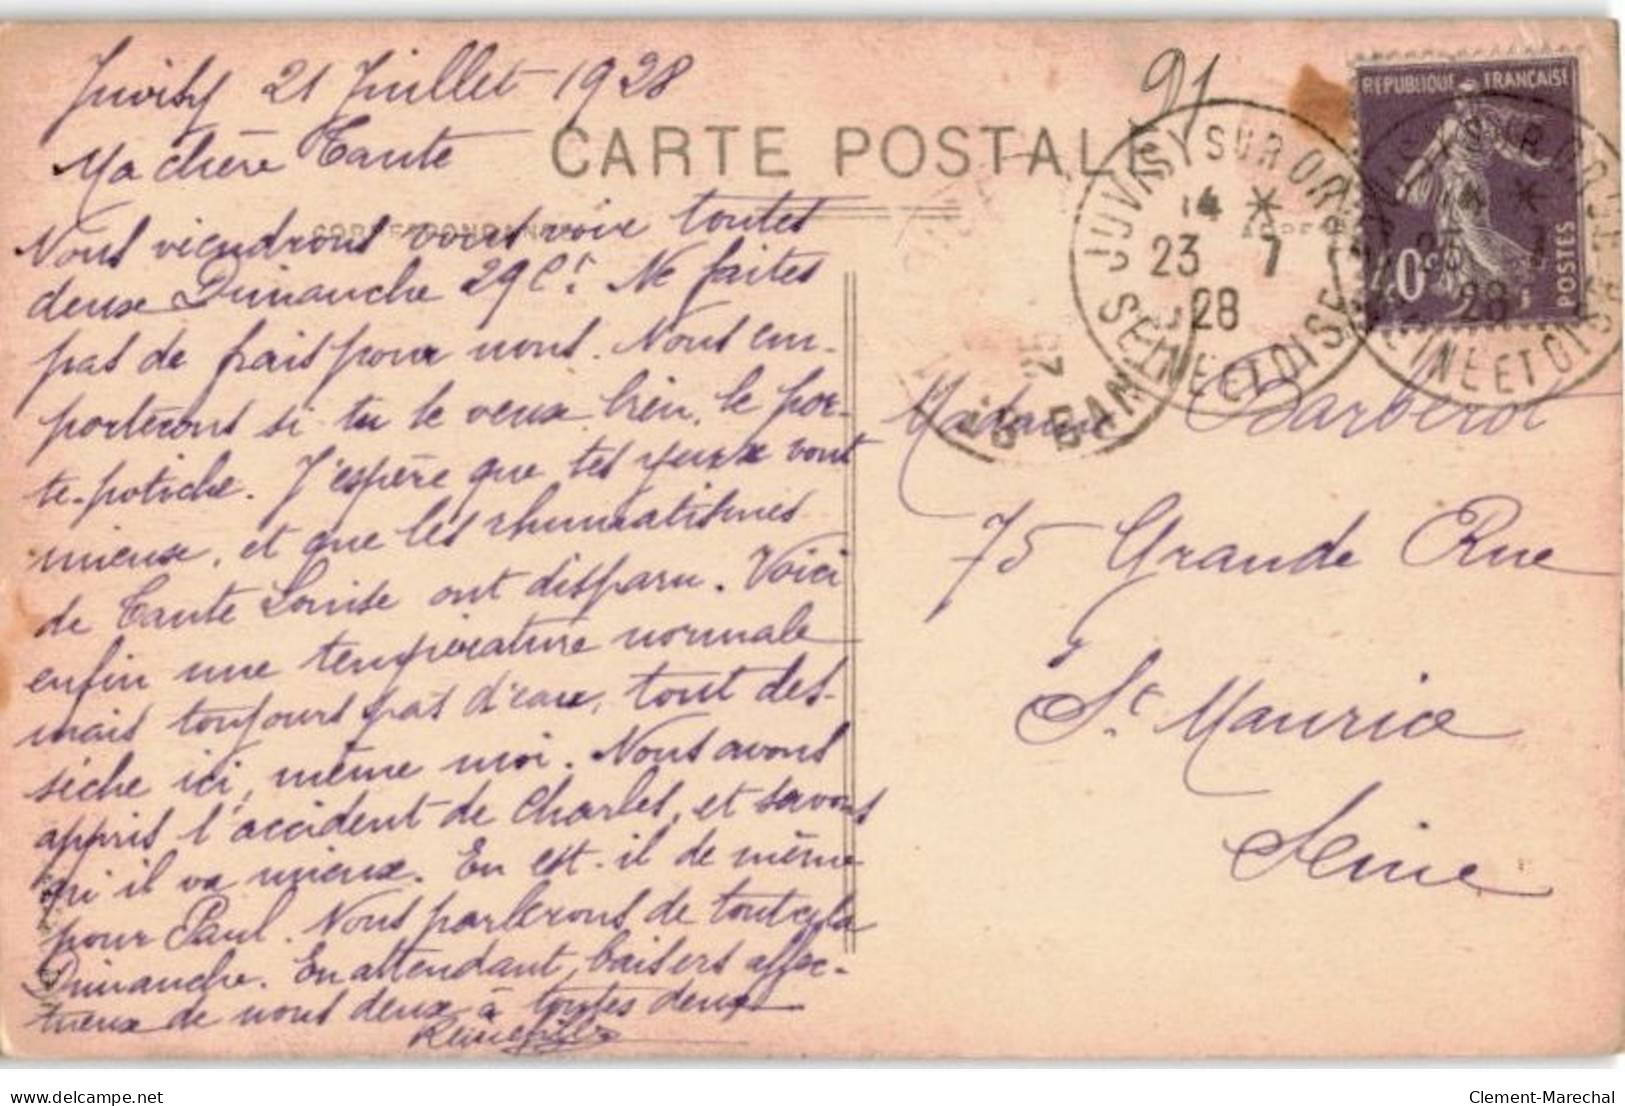 Juvisy 21 Juillet 1928
91
CARTE POSTALE
Ma chère Tante
CORRESPONDANCE
Nous viendrons vous voir toutes
deux Dimanche 29 Ct. Ne faites
pas de frais pour nous. Nous em-
porterons si tu le veux bien, le por-
te-potiche. J'espère que tes yeux vont
mieux, et que les rhumatismes
de Tante Louise ont disparu. Voici
enfin une température normale
mais toujours pas d'eau, tout des-
sèche ici, même moi. Nous avons
appris l'accident de Charles, et savons
qu'il va mieux. En est-il de même
pour Paul. Nous parlerons de tout cela
Dimanche. En attendant, baisers affec-
tueux de nous deux à toutes deux
REPUBLIQUE FRANÇAISE
POSTES
40c
JUVISY SUR ORGE
14 *
23 7
28
SEINE ET OISE
JUVISY SUR ORGE
14 *
23 7
28
SEINE ET OISE
Madame Barberot
75 Grande Rue
St Maurice
Seine
delcampe.net
Clement-Marechal